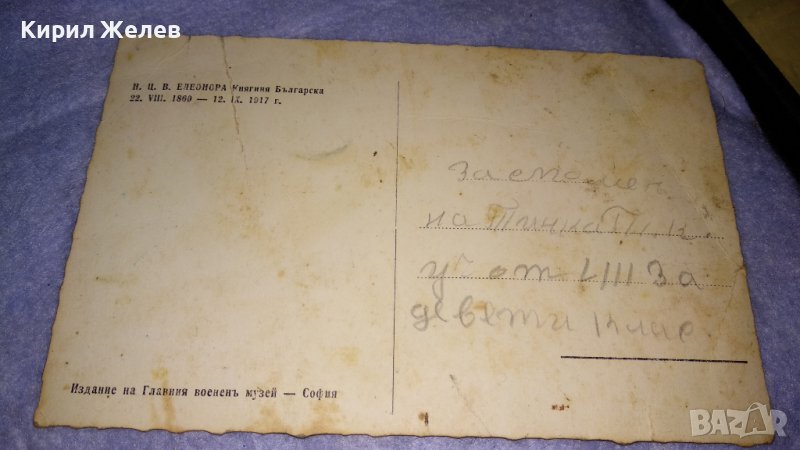 Кирил Желев
Н. Ц. В. ЕЛЕОНОРА Княгиня Българска
22. VIII. 1860 — 12. IX. 1917 г.
За спомен
на Пинка П.
у от VIII за
девети клас.
Издание на Главния воененъ музей — София
BAZAR